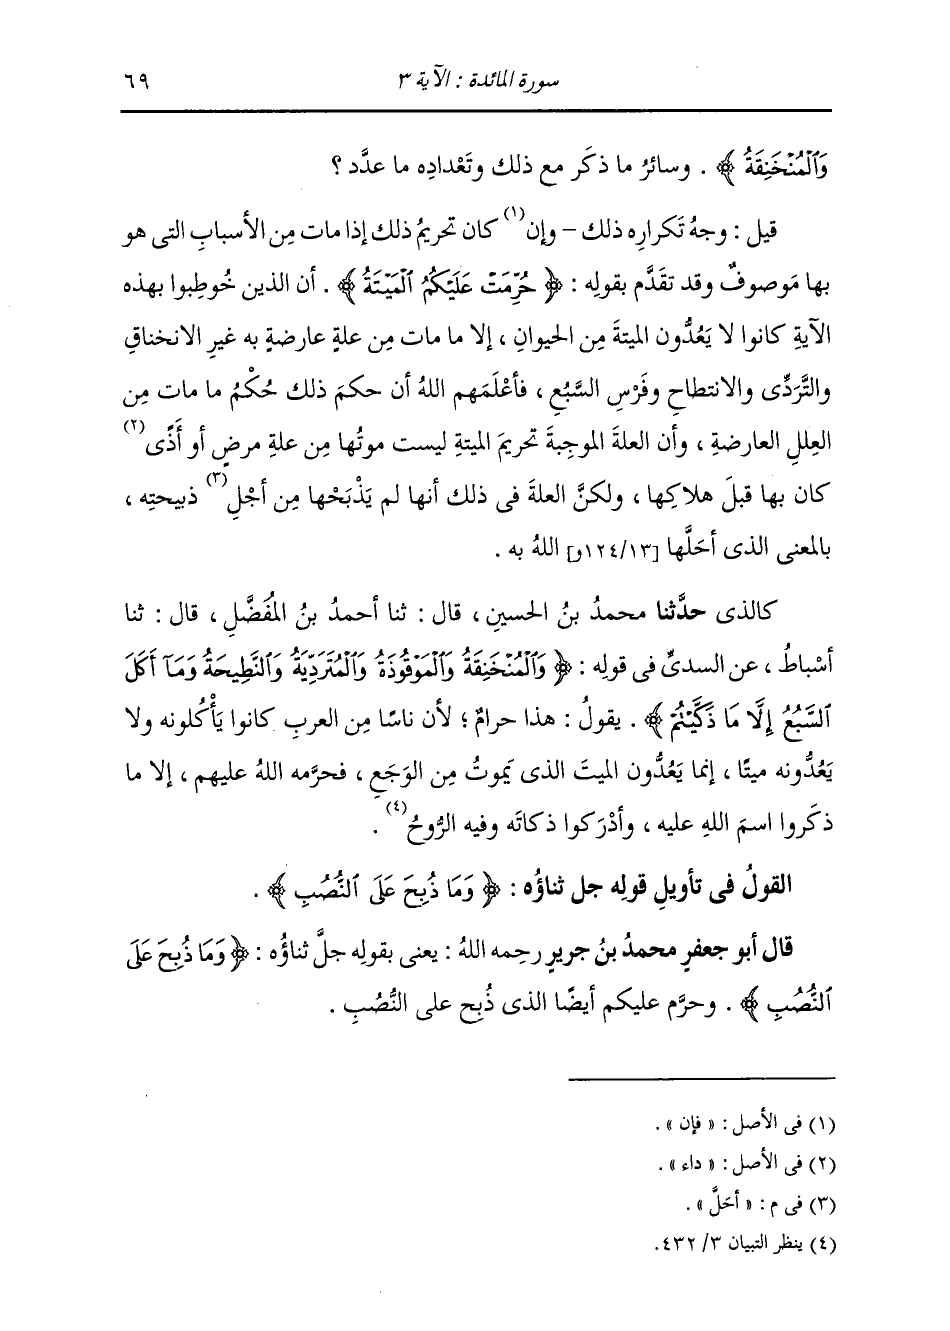 سورة المائدة : الآية ٣ ٦٩
وَٱلْمُنْخَنِقَةُ ﴾ . وسائرُ ما ذكَر مع ذلك وتَعْدادِه ما عدَّد ؟
قيل : وجهُ تَكرارِه ذلك – وإن(١) كان تحريمُ ذلك إذا مات مِن الأسبابِ التى هو
بها مَوصوفٌ وقد تقدَّم بقولِه : ﴿ حُرِّمَتْ عَلَيْكُمُ ٱلْمَيْتَةُ ﴾ . أن الذين خُوطِبوا بهذه
الآيةِ كانوا لا يَعُدُّون الميتةَ مِن الحيوانِ ، إلا ما مات مِن علةٍ عارضةٍ به غيرِ الانخناقِ
والتَّرَدِّى والانتطاحِ وفَرْسِ السَّبُعِ ، فأعْلَمَهم اللهُ أن حكمَ ذلك حُكْمُ ما مات مِن
العِللِ العارضةِ ، وأن العلةَ الموجِبةَ تحريمَ الميتةِ ليست موتُها مِن علةِ مرضٍ أو أَذًى(٢)
كان بها قبلَ هلاكِها ، ولكنَّ العلةَ فى ذلك أنها لم يَذْبَحْها مِن أجْلِ(٣) ذبيحتِه ،
بالمعنى الذى أحَلَّها [١٢٤/١٣و] اللهُ به .
كالذى حدَّثنا محمدُ بنُ الحسينِ ، قال : ثنا أحمدُ بنُ المُفَضَّلِ ، قال : ثنا
أسْباطُ ، عن السدىِّ فى قولِه : ﴿ وَٱلْمُنْخَنِقَةُ وَٱلْمَوْقُوذَةُ وَٱلْمُتَرَدِّيَةُ وَٱلنَّطِيحَةُ وَمَآ أَكَلَ
ٱلسَّبُعُ إِلَّا مَا ذَكَّيْتُمْ ﴾ . يقولُ : هذا حرامٌ ؛ لأن ناسًا مِن العربِ كانوا يَأْكُلونه ولا
يَعُدُّونه ميتًا ، إنما يَعُدُّون الميتَ الذى يَموتُ مِن الوَجَعِ ، فحرَّمه اللهُ عليهم ، إلا ما
ذكَروا اسمَ اللهِ عليه ، وأدْرَكوا ذكاتَه وفيه الرُّوحُ(٤) .
القولُ فى تأويلِ قولِه جل ثناؤُه : ﴿ وَمَا ذُبِحَ عَلَى ٱلنُّصُبِ ﴾ .
قال أبو جعفرٍ محمدُ بنُ جريرٍ رحِمه اللهُ : يعنى بقولِه جلَّ ثناؤُه : ﴿ وَمَا ذُبِحَ عَلَى
ٱلنُّصُبِ ﴾ . وحرَّم عليكم أيضًا الذى ذُبِح على النُّصُبِ .
(١) فى الأصل : « فإن » .
(٢) فى الأصل : « داء » .
(٣) فى م : « أحَلَّ » .
(٤) ينظر التبيان ٣/ ٤٣٢.